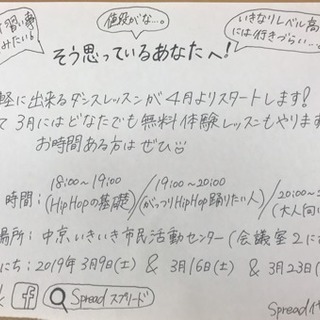 習い事
みたい!
値段がな…。
いきなりレベル高
には行きづらい…。
そう思っているあなたへ!
軽に出来るダンスレッスンが4月よりスタートします!
て3月にはどなたでも無料体験レッスンもやります
お時間ある方はぜひ
18:00~19:00 19:00~20:00 20:00~
時間:(HipHopの基礎)/(がっつりHipHop踊りたい人)/(大人向け
場所:中京いきいき市民活動センター(会議室2に
にち:2019年3月9日(土) & 3月16日(土) & 3月23日(
f Spread スプリード
Spread代